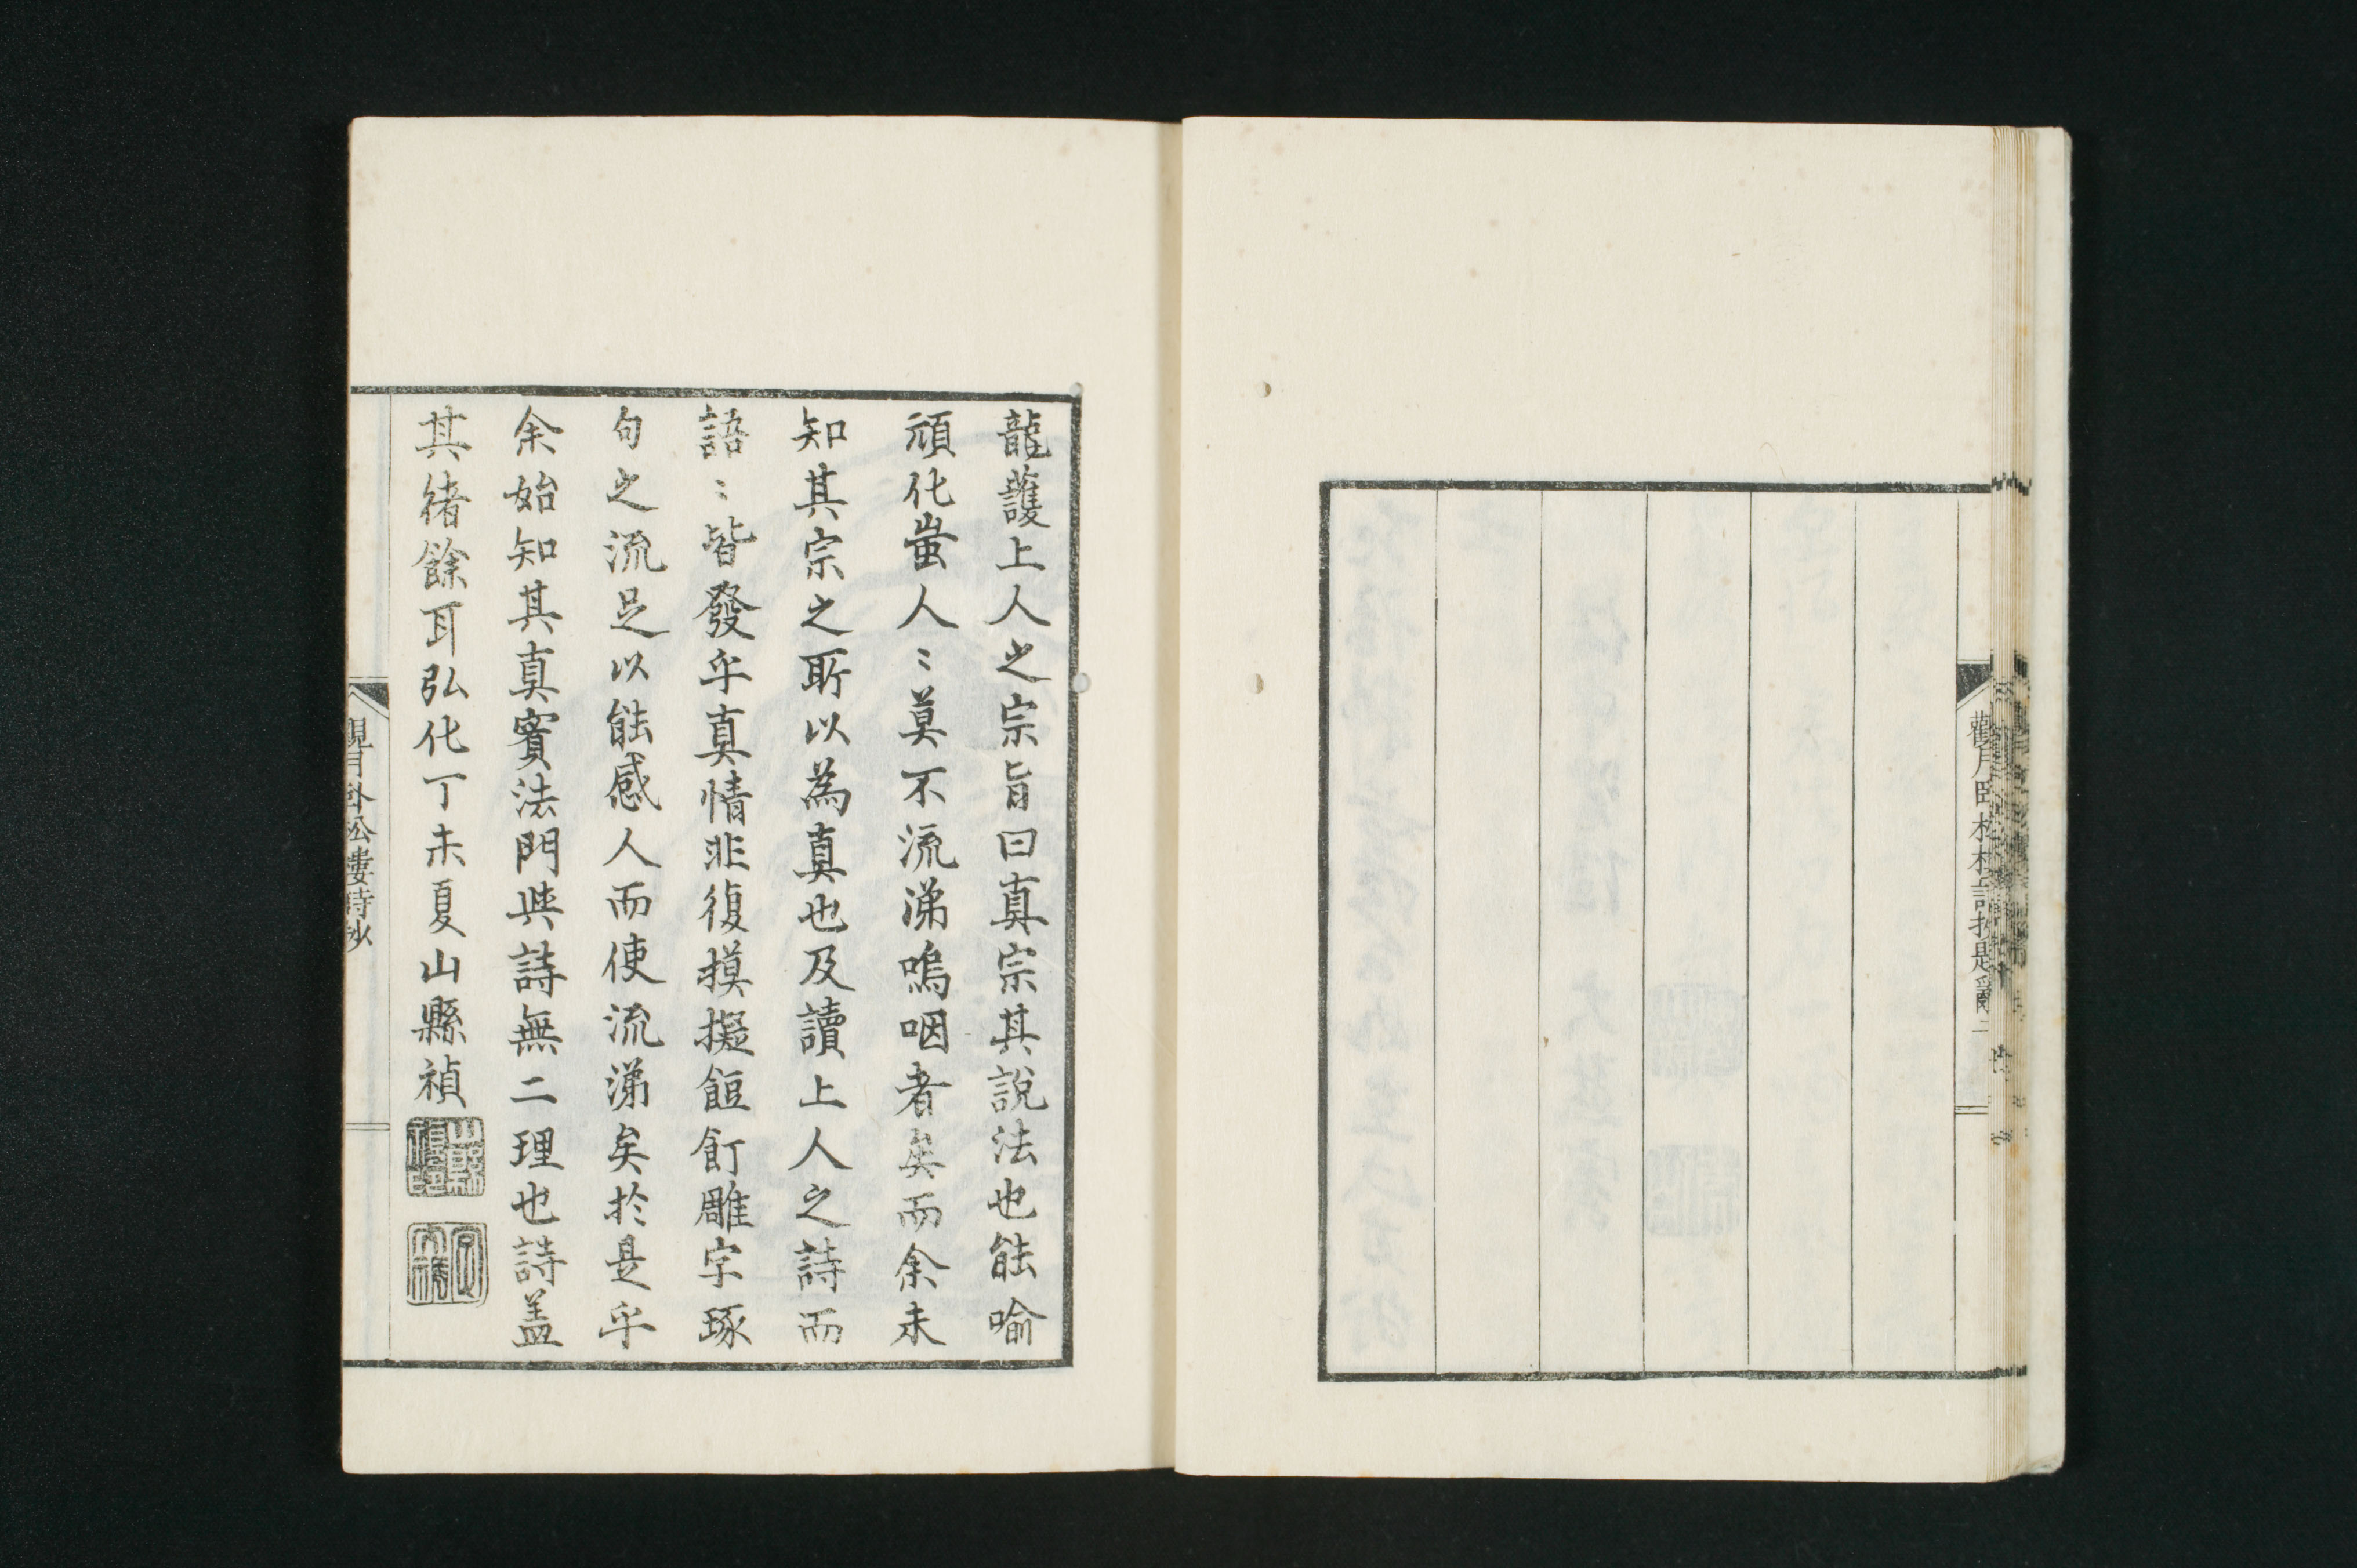 龍護上人之宗旨曰真宗其說法也能喻
頑化蚩人〻莫不流涕嗚咽者矣而余未
知其宗之所以為真也及讀上人之詩而
語〻皆發乎真情非復摸擬餖飣雕字琢
句之流足以能感人而使流涕矣於是乎
余始知其真實法門與詩無二理也詩盖
其緒餘耳弘化丁未夏山縣禎